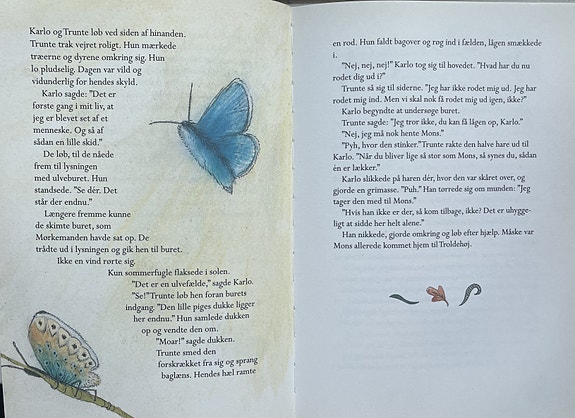 Karlo og Trunte løb ved siden af hinanden.
Trunte trak vejret roligt. Hun mærkede
træerne og dyrene omkring sig. Hun
lo pludselig. Dagen var vild og
vidunderlig for hendes skyld.
Karlo sagde: "Det er
første gang i mit liv, at
jeg er blevet set af et
menneske. Og så af
sådan en lille skid."
De løb, til de nåede
frem til lysningen
med ulveburet. Hun
standsede. "Se dér. Det
står der endnu."
Længere fremme kunne
de skimte buret, som
Mørkemanden havde sat op. De
trådte ud i lysningen og gik hen til buret.
Ikke en vind rørte sig.
Kun sommerfugle flaksede i solen.
"Det er en ulvefælde," sagde Karlo.
"Se!" Trunte løb hen foran burets
indgang. "Den lille piges dukke ligger
her endnu." Hun samlede dukken
op og vendte den om.
"Moar!" sagde dukken.
Trunte smed den
forskrækket fra sig og sprang
baglæns. Hendes hæl ramte
en rod. Hun faldt bagover og røg ind i fælden, lågen smækkede
i.
"Nej, nej, nej!" Karlo tog sig til hovedet. "Hvad har du nu
rodet dig ud i?"
Trunte så sig til siderne. "Jeg har ikke rodet mig ud. Jeg har
rodet mig ind. Men vi skal nok få rodet mig ud igen, ikke?"
Karlo begyndte at undersøge buret.
Trunte sagde: "Jeg tror ikke, du kan få lågen op, Karlo."
"Nej, jeg må nok hente Mons."
"Pyh, hvor den stinker." Trunte rakte den halve hare ud til
Karlo. "Når du bliver lige så stor som Mons, så synes du, sådan
én er lækker."
Karlo slikkede på haren dér, hvor den var skåret over, og
gjorde en grimasse. "Puh." Han tørrede sig om munden: "Jeg
tager den med til Mons."
"Hvis han ikke er der, så kom tilbage, ikke? Det er uhygge-
ligt at sidde her helt alene."
Han nikkede, gjorde omkring og løb efter hjælp. Måske var
Mons allerede kommet hjem til Troldehøj.